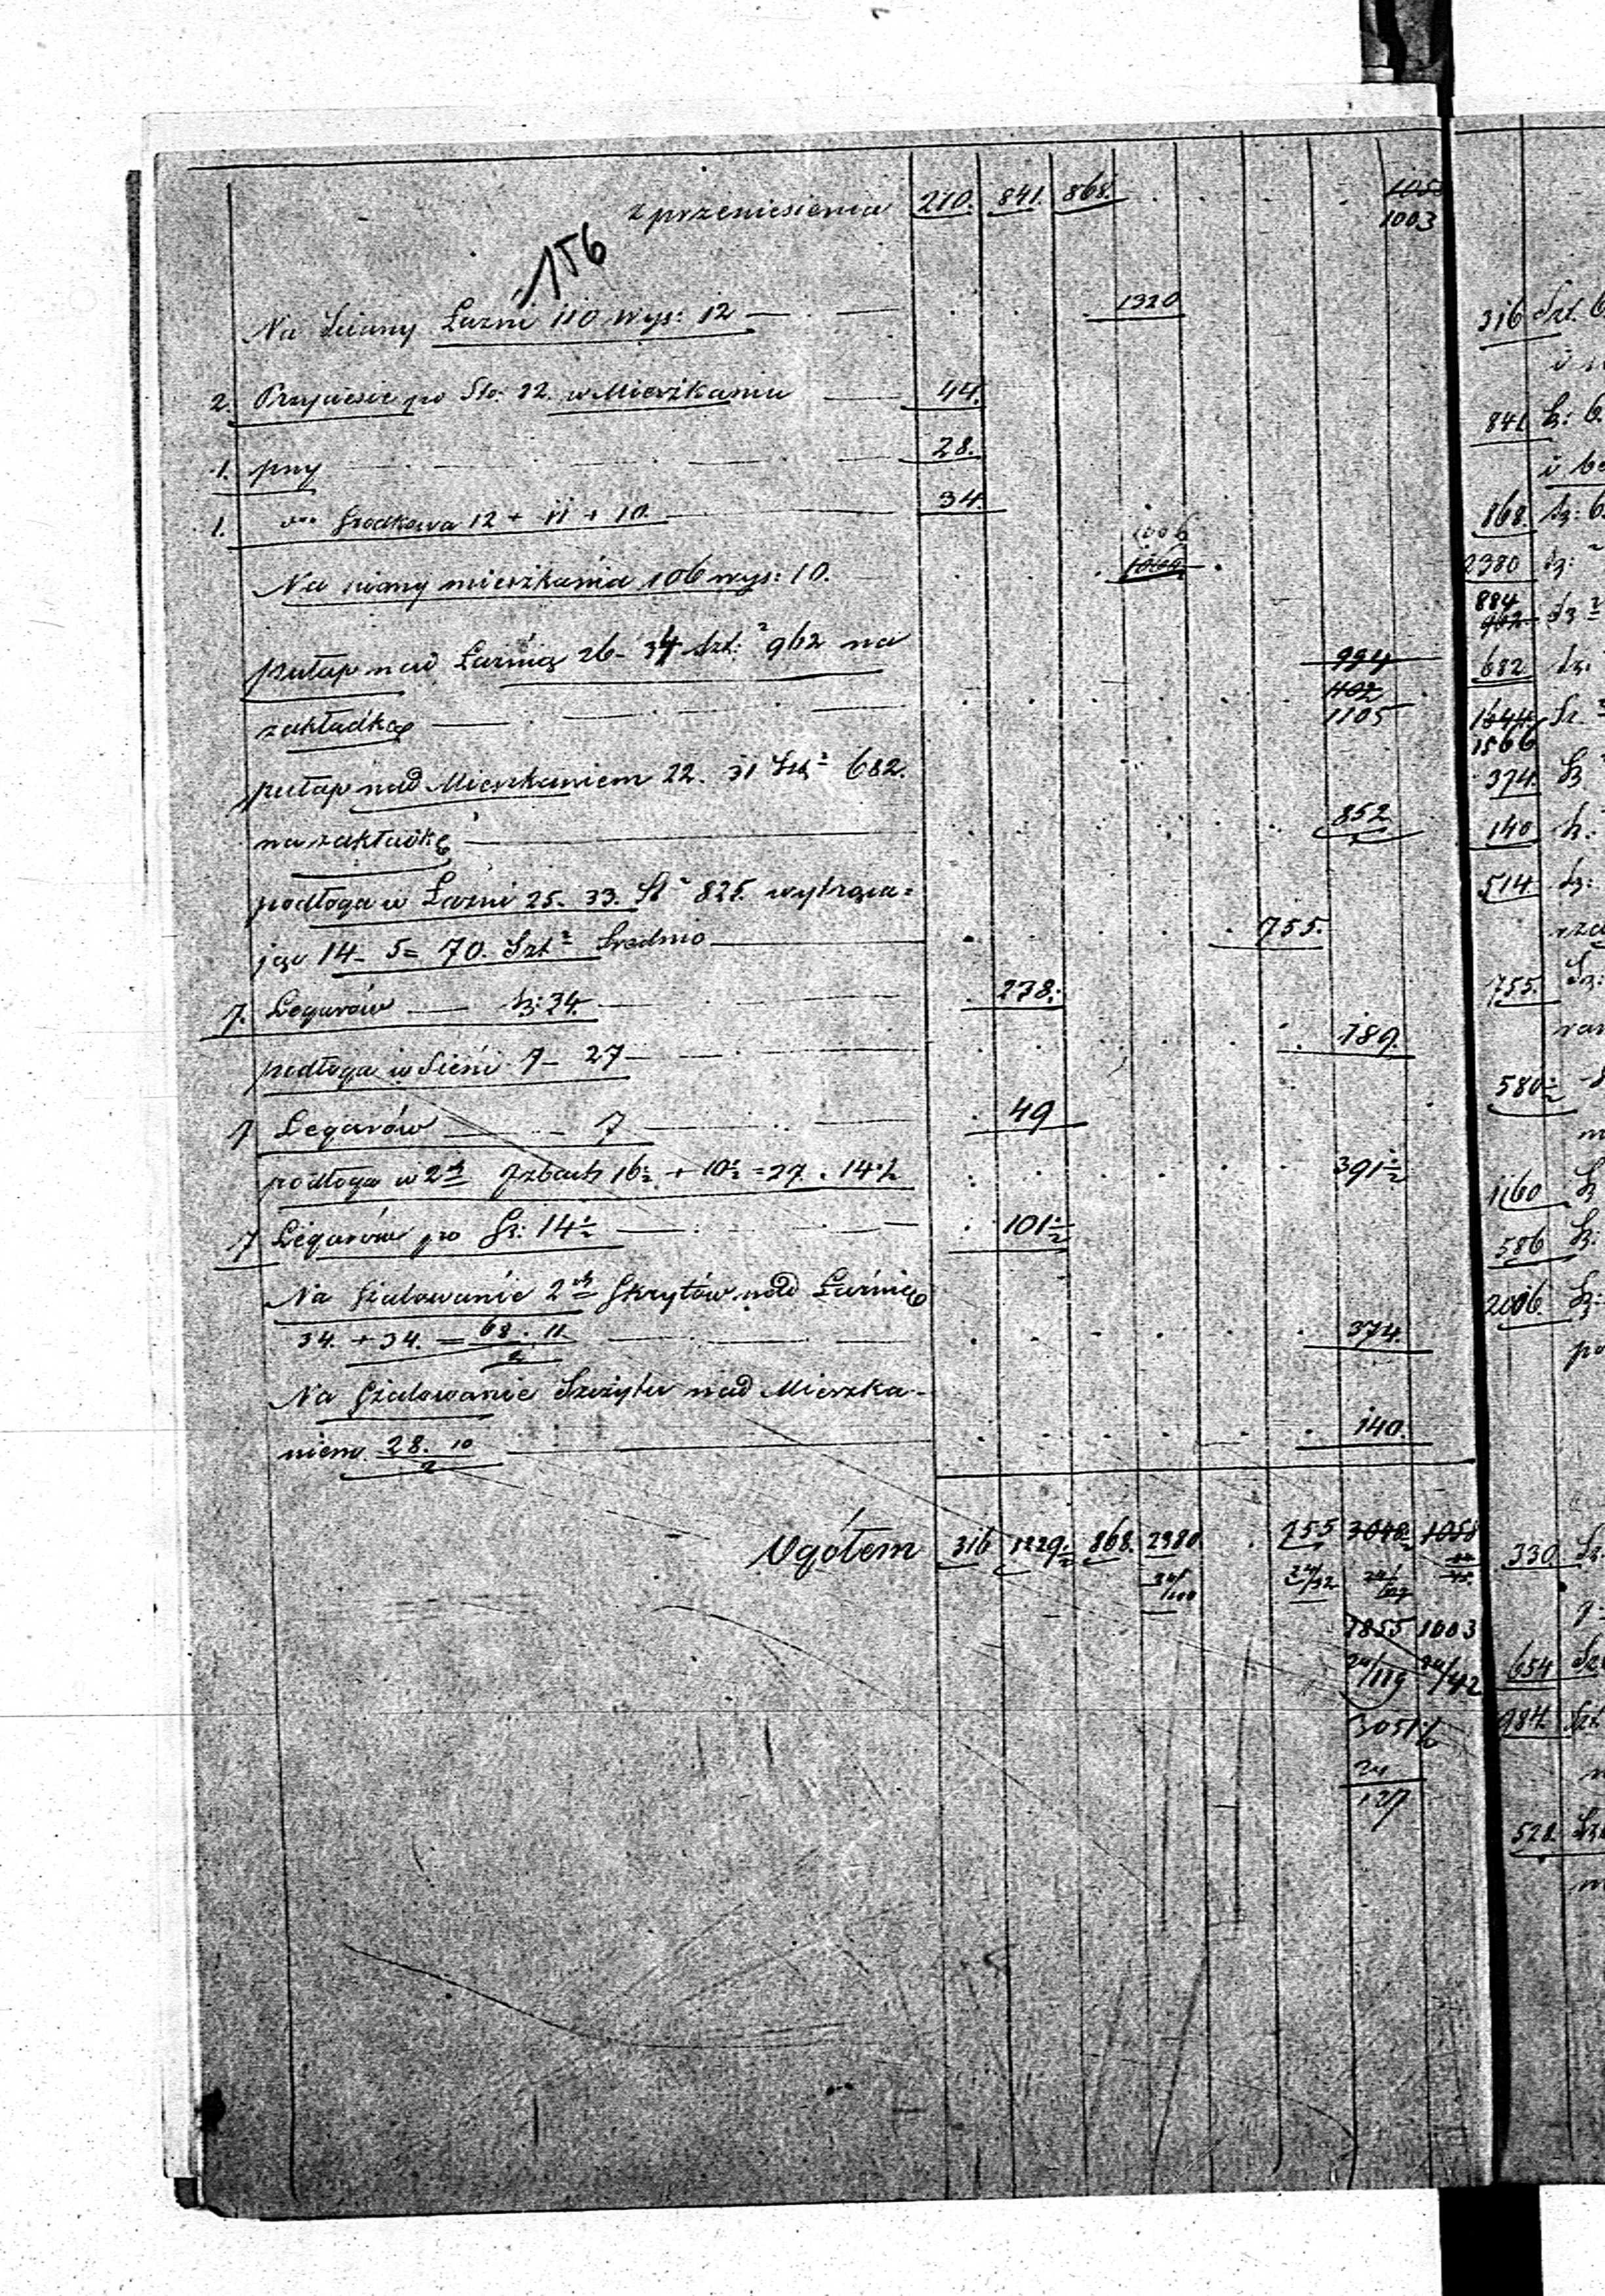 z przeniesienia 210. 841. 868. 1058
1003
156
Na Sciany Łazni 110 wys: 12 1320
2. Przyciesie po Sto: 22. w Mieszkaniu 44.
1. przy 28.
1. Srodkowa 12 + 11 + 10. 34.
1006
Na sciany mieszkania 106 wys: 10. 1060
pułap nad Łaznią 26 - 34 Szt: 2 962 na 994
1102
zakładkę 1105
pułap nad Mieszkaniem 22. 31 Szt 2 682.
na zakładkę 852
podłoga w Łazni 25. 33. St 2 825. wytrąca=
jąc 14 - 5 = 70. Szt 2 Srednio 755.
7. Legarów Sz: 34. 238.
podłoga w Sieni 7 - 27 189.
7 Legarów 7 49
podłoga w 2ch Izbach 16½ + 10½ = 27. 14½ 391½
7 Legarów po St: 14½ 101½
Na Szalowanie 2ch Skrytów nad Łaznią
34. + 34. = 68. 11 / 2 374.
Na Szalowanie Szczytu nad Mieszka-
niem 28. 10 / 2 140.
Ogółem 316 1229½ 868. 2380 755 3048½ 1058
24/100 24/32 24/127
1855 1003
24/119 24/42
3051½
24
127
316 Szt. 6
841 Sz: 6.
868. Sz: 6
2380 Sz:
884
962 Sz 2
682 Sz.
1644 Sz. 2
1566
374. Sz
140 Sz.
514. Sz:
755. Sz:
580½
1160 Sz
586 Sz:
2006 Sz:
po
330 Sz.
654 Sz
984 Szt
528. Sz